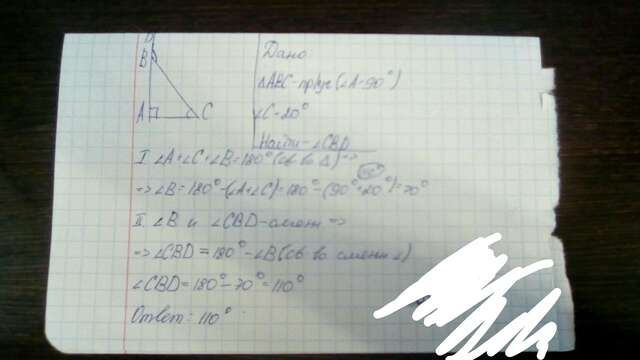 D
B
A C
Дано
△ABC-пр/уг (∠A-90°)
∠C-20°
Найти-∠CBD
I ∠A+∠C+∠B=180° (св во △) =>
=> ∠B=180°-(∠A+∠C)=180°-(90°+20°)=70°
II ∠B и ∠CBD-смежн =>
=> ∠CBD=180°-∠B (св во смежн ∠)
∠CBD=180°-70°=110°
Ответ: 110°